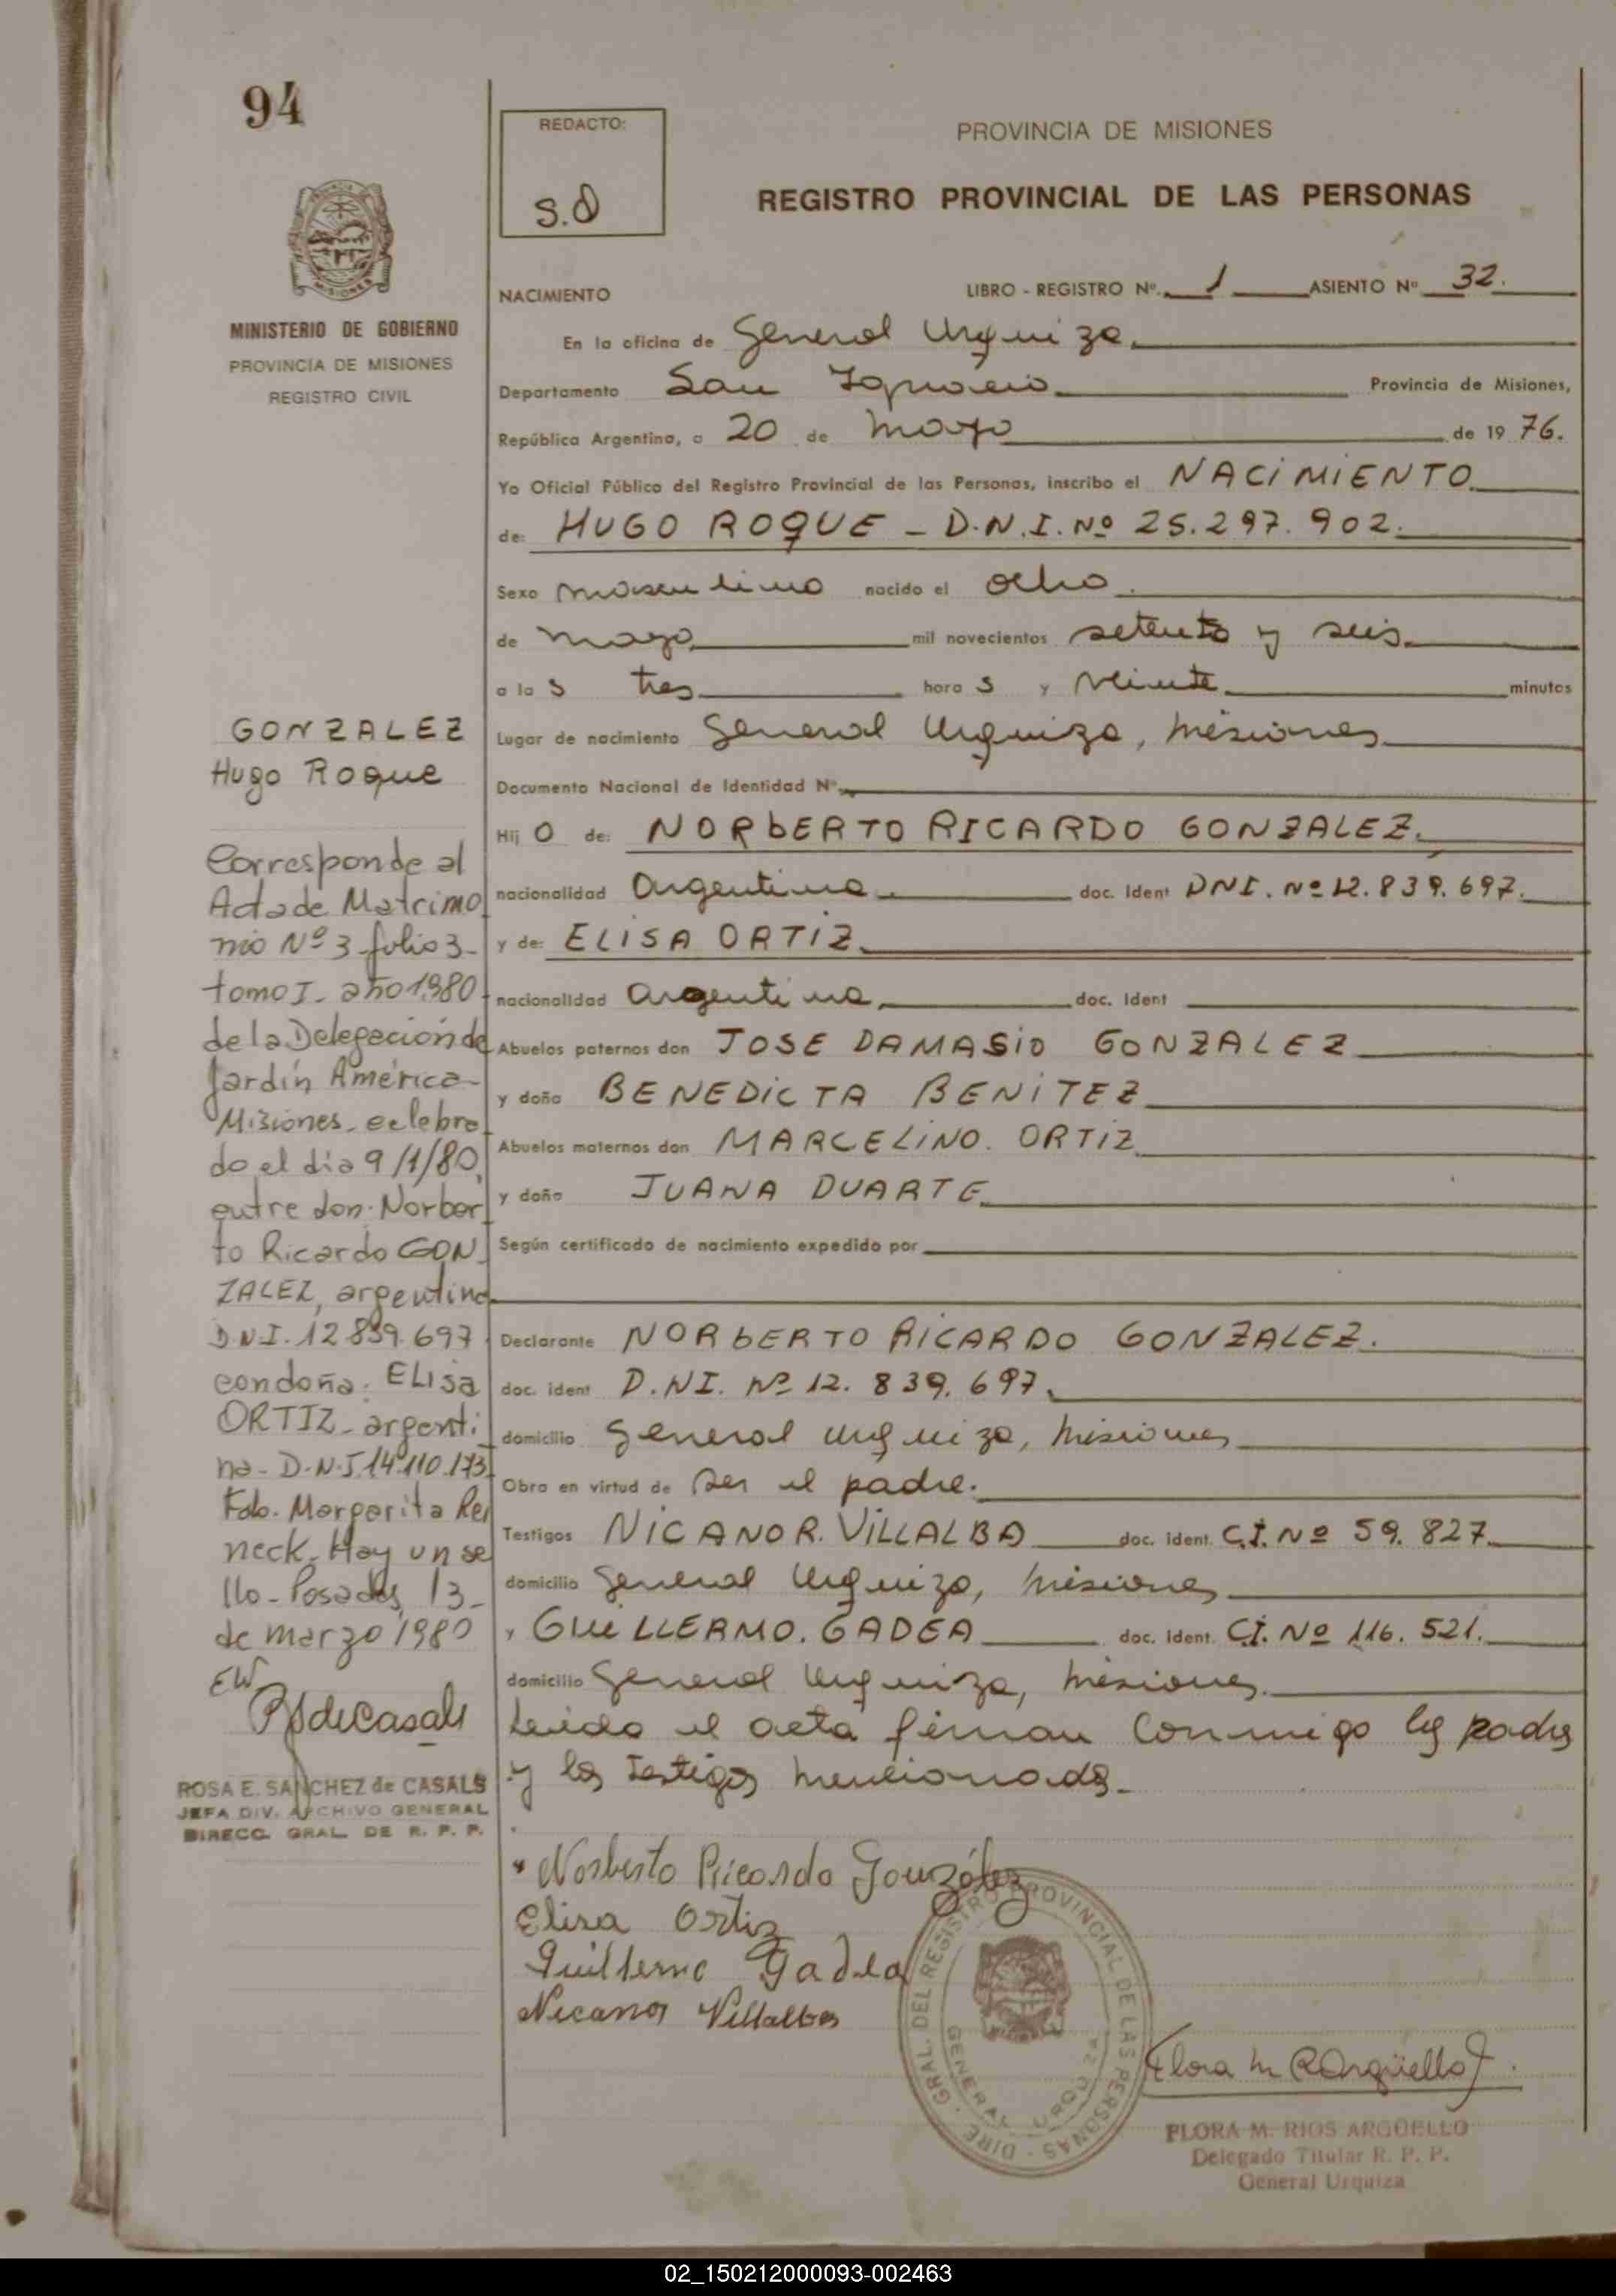 94
MINISTERIO DE GOBIERNO
PROVINCIA DE MISIONES
REGISTRO CIVIL
GONZALEZ
Hugo Roque
Corresponde al
Acta de Matrimo
nio Nº 3 folio 3-
tomo I- año 1980
de la Delegación de
Jardín América-
Misiones, celebra
do el día 9/1/80,
entre don: Norber
to Ricardo GON
ZALEZ, argentino
D.N.I. 12.839.697
con doña: ELISA
ORTIZ- argenti
na- D.N.I 14.110.173
Fdo. Margarita Rei
neck. Hay un se
llo- Posadas, 13-
de marzo 1980
EW
RSdeCasals
ROSA E. SANCHEZ de CASALS
JEFA DIV. ARCHIVO GENERAL
DIRECC. GRAL. DE R. P. P.
REDACTO:
S.O
PROVINCIA DE MISIONES
REGISTRO PROVINCIAL DE LAS PERSONAS
NACIMIENTO LIBRO - REGISTRO Nº. 1 ASIENTO Nº 32.
En la oficina de General Urquiza
Departamento San Ignacio Provincia de Misiones,
República Argentina, a 20 de mayo de 19 76.
Yo Oficial Público del Registro Provincial de las Personas, inscribo el NACIMIENTO
de: HUGO ROQUE - D.N.I. Nº 25.297.902.
Sexo masculino nacido el ocho
de mayo mil novecientos setenta y seis
a la s tres hora s y veinte minutos
Lugar de nacimiento General Urquiza, Misiones
Documento Nacional de Identidad Nº
Hij o de: NORBERTO RICARDO GONZALEZ.
nacionalidad Argentina doc. Ident DNI. Nº 12.839.697.
y de: ELISA ORTIZ
nacionalidad Argentina doc. Ident
Abuelos paternos don JOSE DAMASIO GONZALEZ
y doña BENEDICTA BENITEZ
Abuelos maternos don MARCELINO. ORTIZ
y doña JUANA DUARTE
Según certificado de nacimiento expedido por
Declarante NORBERTO RICARDO GONZALEZ.
doc. ident D.NI. Nº 12. 839. 697.
domicilio General Urquiza, Misiones
Obra en virtud de ser el padre.
Testigos NICANOR. VILLALBA doc. ident. C.I. Nº 59. 827
domicilio General Urquiza, Misiones
y GUILLERMO. GADEA doc. ident. C.I. Nº 116. 521.
domicilio General Urquiza, Misiones.
Leida el acta firman conmigo los padres
y los testigos mencionados-
Norberto Ricardo González
Elisa Ortiz
Guillermo Gadea
Nicanor Villalba
DIRE. GRAL. DEL REGISTRO PROVINCIAL DE LAS PERSONAS
GENERAL URQUIZA
Flora M R Argüello
FLORA M. RIOS ARGÜELLO
Delegado Titular R. P. P.
General Urquiza
02_150212000093-002463